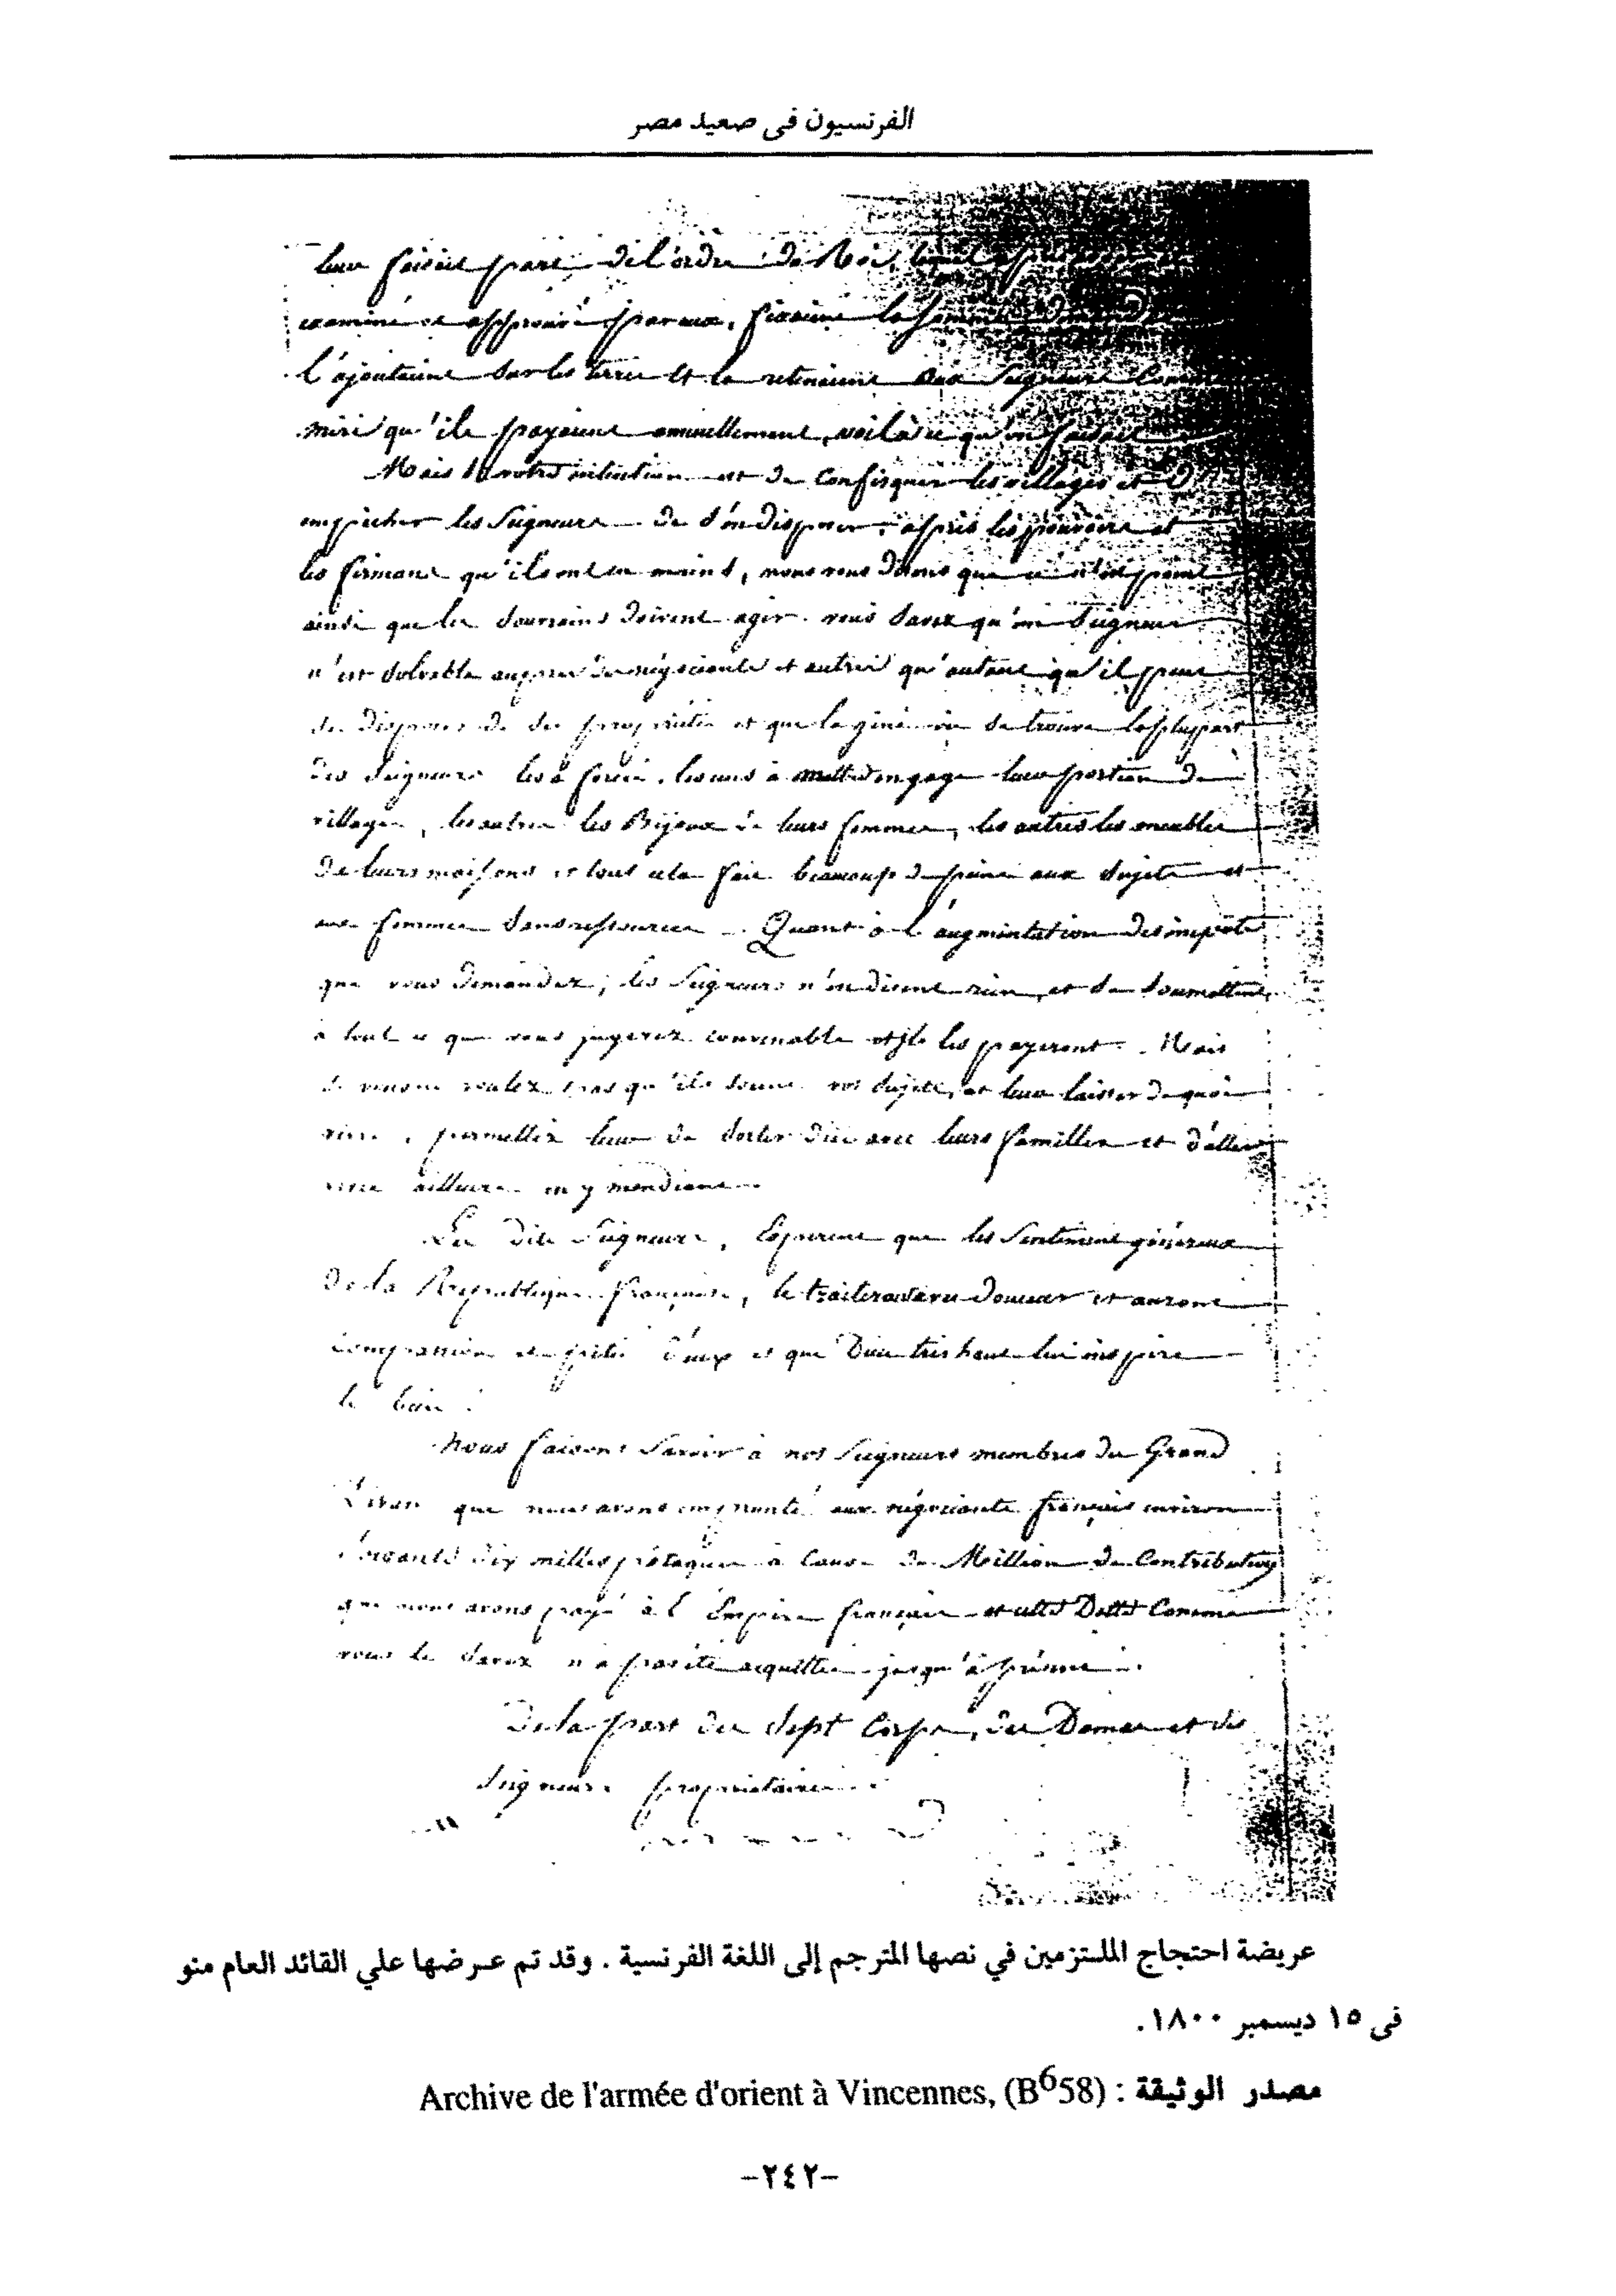 الفرنسيون فى صعيد مصر
leur faisait part de l'ordre du Roi, lequel après
examiné et approuvé par eux, fixaient la somme demandée
l'ajoutaient sur les terres et la retenaient aux Seigneurs Comme
miri qu'ils payaient annuellement, voila ce qu'on faisait
Mais si votre intention est de Confisquer les villages et d'
empecher les Seigneurs de s'en disposer, après les pouvoirs et
les firmans qu'ils ont en mains, nous vous disons que ce n'est point
ainsi que les Souverains doivent agir. vous savez qu'un Seigneur
n'est solvable auprès des négociants et autres qu'autant qu'il peut
de disposer de ses propriétés et que la gène où se trouve la pluspart
des Seigneurs les a forcés, les uns à mettre en gage leur portion de
villages, les autres les Bijoux de leurs femmes, les autres les meubles
de leurs maisons et tout cela fait beaucoup de peine aux Sujets et
aux femmes sans ressources. Quant à l'augmentation des impots
que vous demandez, les Seigneurs n'en disent rien, et se soumettent
à tout ce que vous jugerez convenable et ils les payeront. Mais
si vous ne voulez pas qu'ils soient vos Sujets, et leur laisser de quoi
vivre, permettez leur de sortir d'ici avec leurs familles et d'aller
vivre ailleurs en y mendiant
Les dits Seigneurs, Espèrent que les Sentiments généreux
de la République française, le traitera avec douceur et auront
compassion et pitié d'eux et que Dieu très haut lui inspire
le bien.
Nous faisons Savoir à nos Seigneurs membres du Grand
Divan que nous avons emprunté aux négociants français environ
soixante dix milles pataques à Cause du Million de Contributions
que nous avons payé à l'Empire français et cette Dette Comme
vous le savez n'a pas été acquittée jusqu'à présent.
De la part des sept Corps, des Dames et des
Seigneurs propriétaires
عريضة احتجاج الملتزمين في نصها المترجم إلى اللغة الفرنسية . وقد تم عرضها علي القائد العام منو
فى ١٥ ديسمبر ١٨٠٠.
مصدر الوثيقة : Archive de l'armée d'orient à Vincennes, (B⁶58)
-٢٤٢-